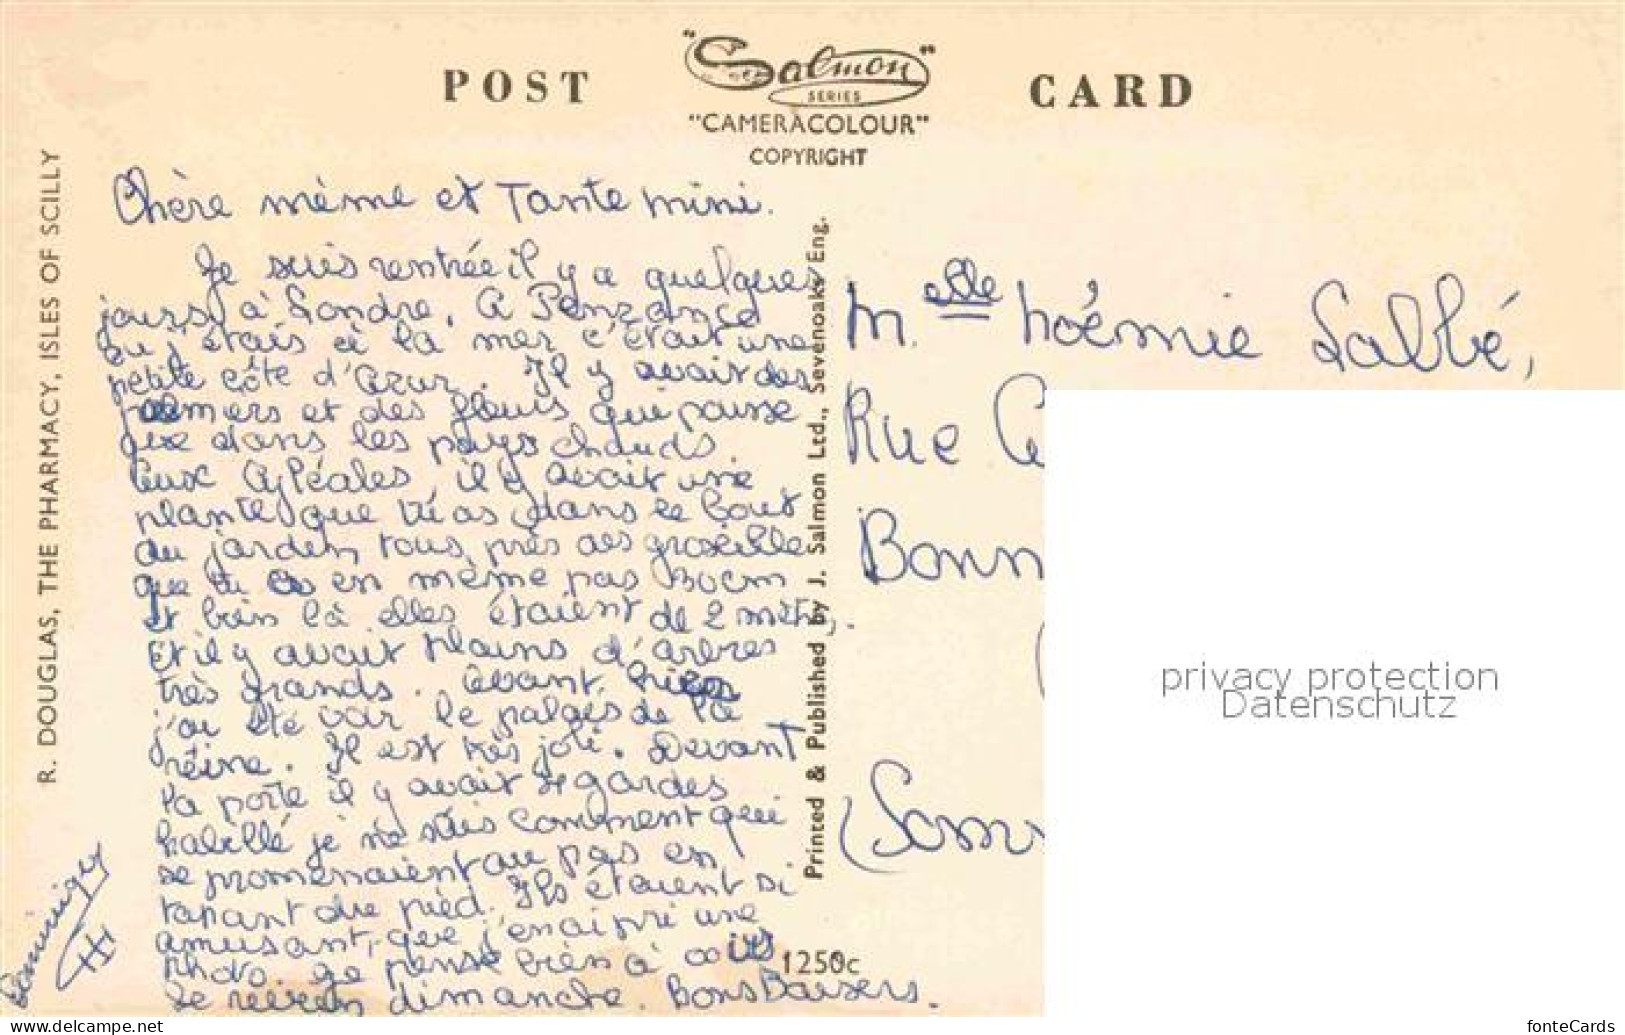 POST CARD
"Salmon"
SERIES
"CAMERACOLOUR"
COPYRIGHT
R. DOUGLAS, THE PHARMACY, ISLES OF SCILLY
Chère mème et Tante mini.
Je suis rentrée il y a quelques
jours à Londre. A Penzance
ou j'étais à la mer c'était une
petite côte d'azur. Il y avait des
palmiers et des fleurs qui pousse
que dans les pays chauds
Aux Azéales, il y avait une
plante que tu as dans le bout
du jardin tous près des groseille
que tu as en même pas 30cm
et bien là elles étaient de 2 mètr,.
Et il y avait plains d'arbres
très grands. Avant hier
j'ai été voir le palais de la
reine. Il est très joli. Devant
la porte il y avait des gardes
habillé je ne sais comment qui
se promenaient au pas en
tapant du pied. Ils étaient si
amusant, que j'en ai pri une
photo. Je pense bien à vous
se revoir dimanche. Bons Baisers.
Printed & Published by J. Salmon Ltd., Sevenoaks Eng.
M.elle Noémie Labbé,
Rue
Bonn
(Som
1250c
privacy protection
Datenschutz
fonteCards